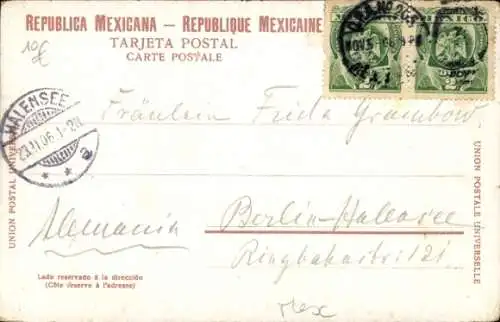 REPUBLICA MEXICANA — REPUBLIQUE MEXICAINE
TARJETA POSTAL
CARTE POSTALE
10
€
NOV 5
HALENSEE
23.11.06.1-2N.
* a *
UNION POSTAL UNIVERSAL
UNION POSTALE UNIVERSELLE
Fräulein Frida Grambow
Alemania
Berlin-Halensee
Ringbahnstr 121
Lado reservado à la dirección
(Côte deserve à l'adresse)
Mex